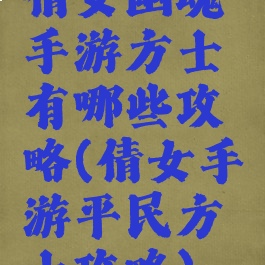 倩女幽魂
手游方士
有哪些攻
略(倩女手
游平民方
士攻略)